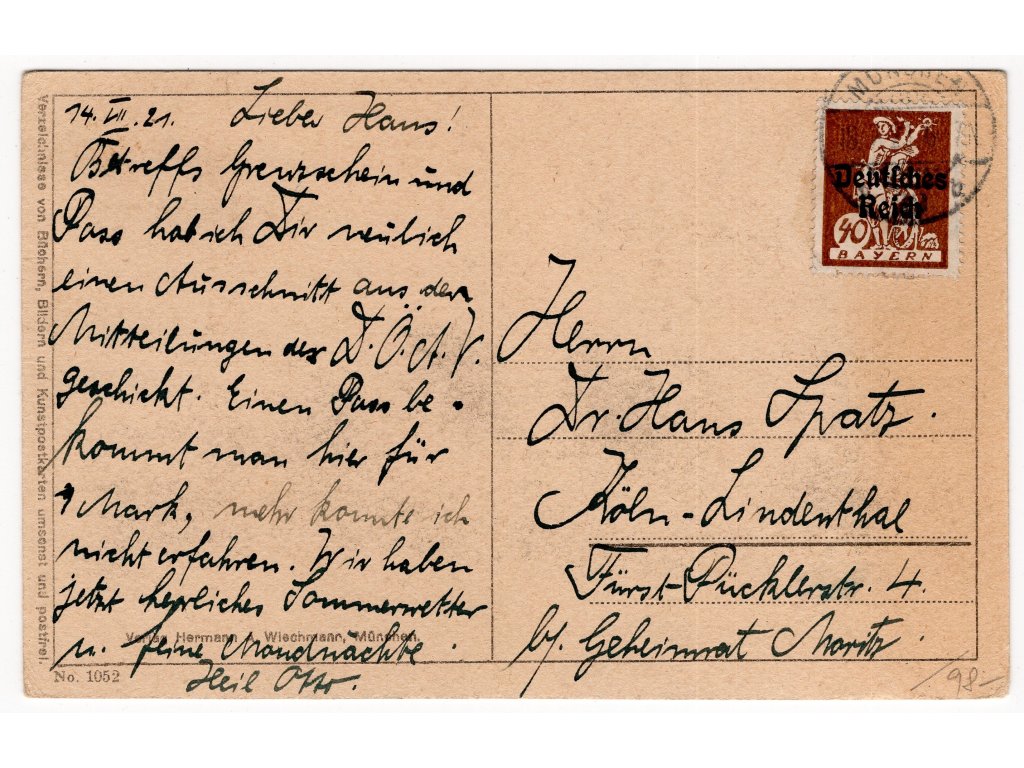 14. VII. 21. Lieber Hans!
Betreffs Grenzschein und
Pass hab ich Dir neulich
einen Ausschnitt aus den
Mitteilungen des D.Ö.A.V.
geschickt. Einen Pass be-
kommt man hier für
1 Mark, mehr konnte ich
nicht erfahren. Wir haben
jetzt herrliches Sommerwetter
u. feine Mondnächte.
Heil Otto.
Herrn
Dr. Hans Spatz.
Köln-Lindenthal
Fürst-Pücklerstr. 4.
b/. Geheimrat Moritz
MÜNCHEN
Deutsches
Reich
40
BAYERN
Verzeichnisse von Büchern, Bildern und Kunstpostkarten umsonst und postfrei.
Verlag Hermann A. Wiechmann, München.
No. 1052
/98-